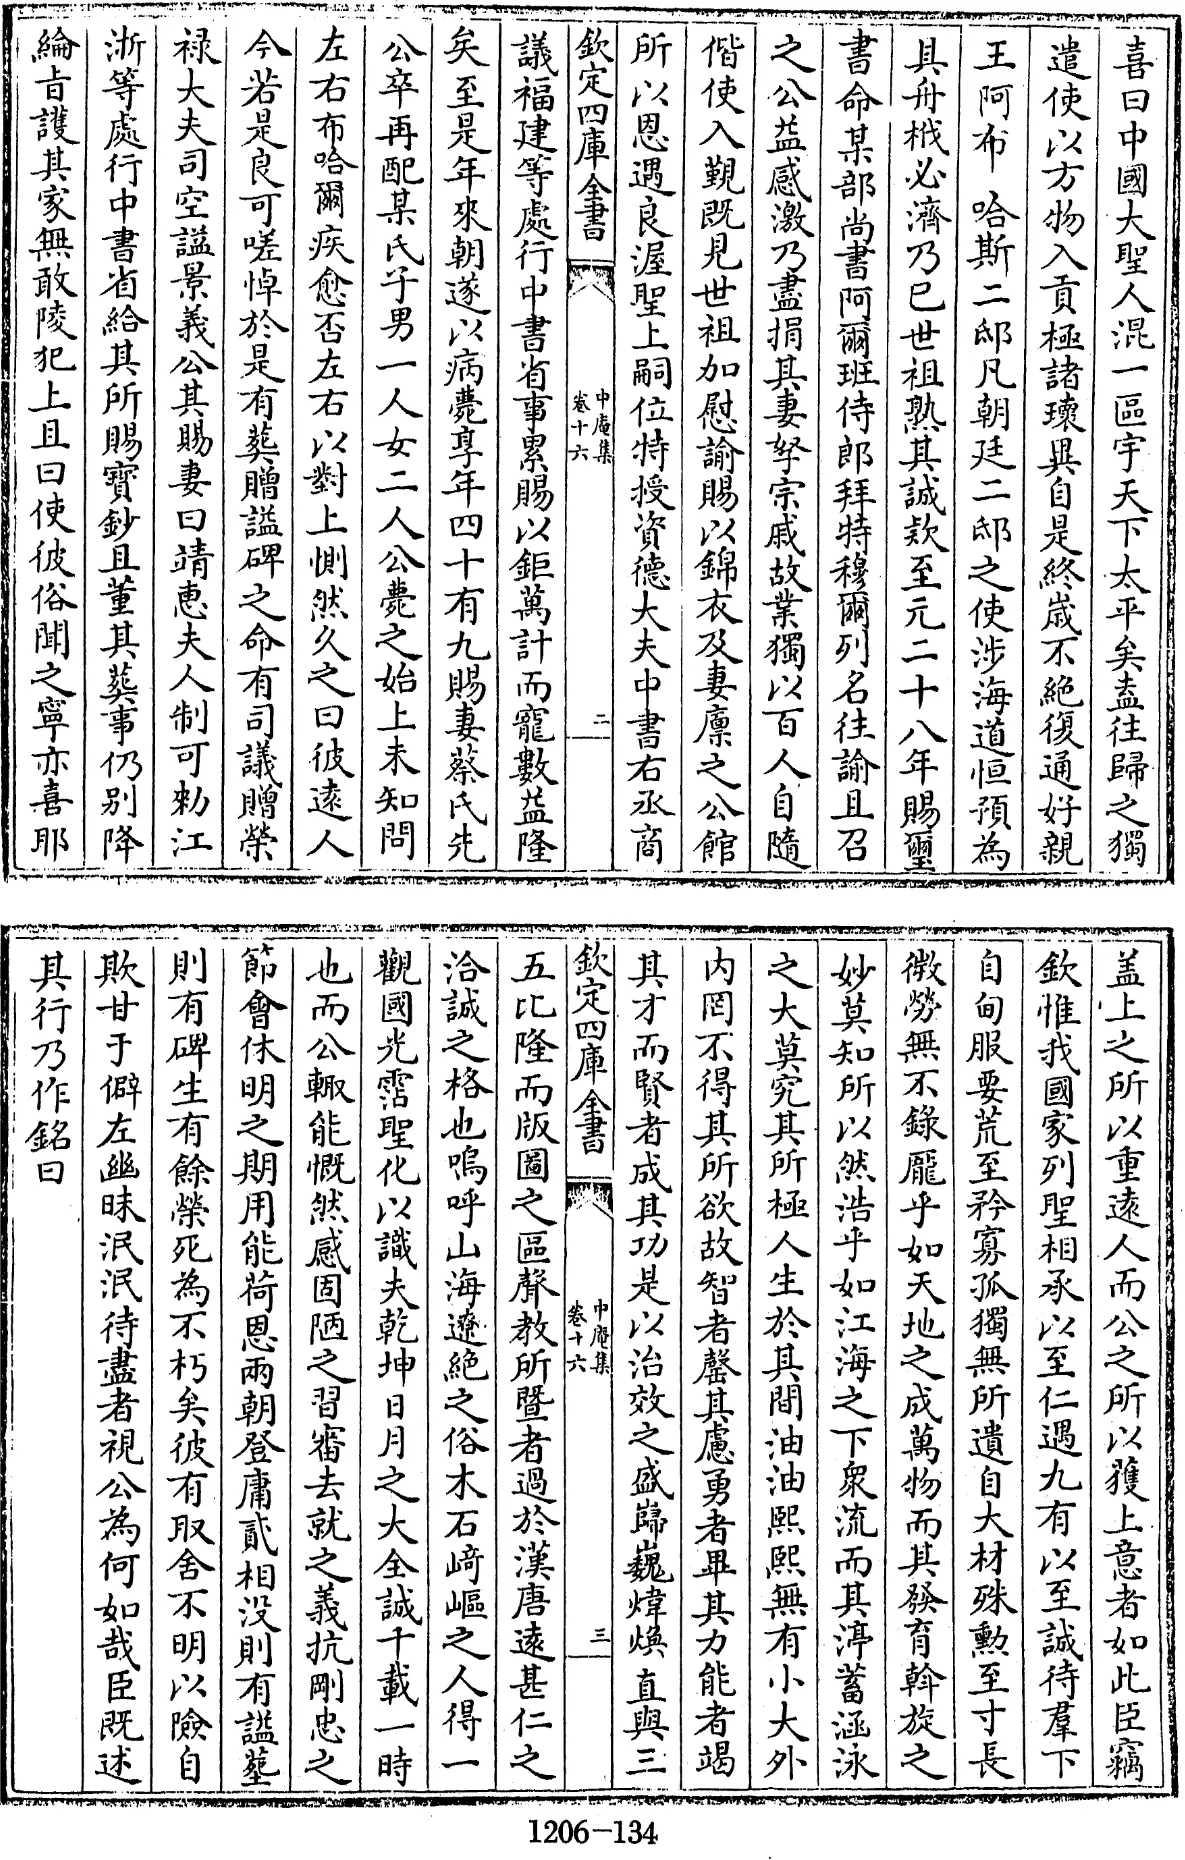 喜曰中國大聖人混一區宇天下太平矣盍往歸之獨
遣使以方物入貢極諸瓌異自是終歳不絶復通好親
王阿布哈斯二邸凡朝廷二邸之使渉海道恒預為
具舟栰必濟乃已世祖熟其誠欵至元二十八年賜璽
書命某部尚書阿爾班侍郎拜特穆爾列名往諭且召
之公益感激乃盡捐其妻孥宗戚故業獨以百人自隨
偕使入覲既見世祖加慰諭賜以錦衣及妻廪之公館
所以恩遇良渥聖上嗣位特授資德大夫中書右丞商
欽定四庫全書
中庵集
卷十六
二
議福建等處行中書省事累賜以鉅萬計而寵數益隆
矣至是年來朝遂以病薨享年四十有九賜妻蔡氏先
公卒再配某氏子男一人女二人公薨之始上未知問
左右布哈爾疾愈否左右以對上惻然久之曰彼逺人
今若是良可嗟悼於是有葬贈諡碑之命有司議贈榮
禄大夫司空諡景義公其賜妻曰靖恵夫人制可勅江
浙等處行中書省給其所賜寳鈔且董其葬事仍别降
綸㫖護其家無敢陵犯上且曰使彼俗聞之寧亦喜耶
盖上之所以重逺人而公之所以獲上意者如此臣竊
欽惟我國家列聖相承以至仁遇九有以至誠待羣下
自甸服要荒至矜寡孤獨無所遺自大材殊勲至寸長
微勞無不錄龎乎如天地之成萬物而其發育斡旋之
妙莫知所以然浩乎如江海之下衆流而其渟蓄涵泳
之大莫究其所極人生於其間油油熙熙無有小大外
内罔不得其所欲故智者罄其慮勇者畢其力能者竭
其才而賢者成其功是以治效之盛巋巍煒煥直與三
欽定四庫全書
中庵集
卷十六
三
五比隆而版圖之區聲教所暨者過於漢唐逺甚仁之
洽誠之格也嗚呼山海遼絶之俗木石﨑嶇之人得一
觀國光霑聖化以識夫乾坤日月之大全誠千載一時
也而公輙能慨然感固陋之習審去就之義抗剛忠之
節會休明之期用能荷恩兩朝登庸貳相没則有諡塟
則有碑生有餘榮死為不朽矣彼有取舍不明以險自
欺甘于僻左幽昧泯泯待盡者視公為何如哉臣既述
其行乃作銘曰
1206-134